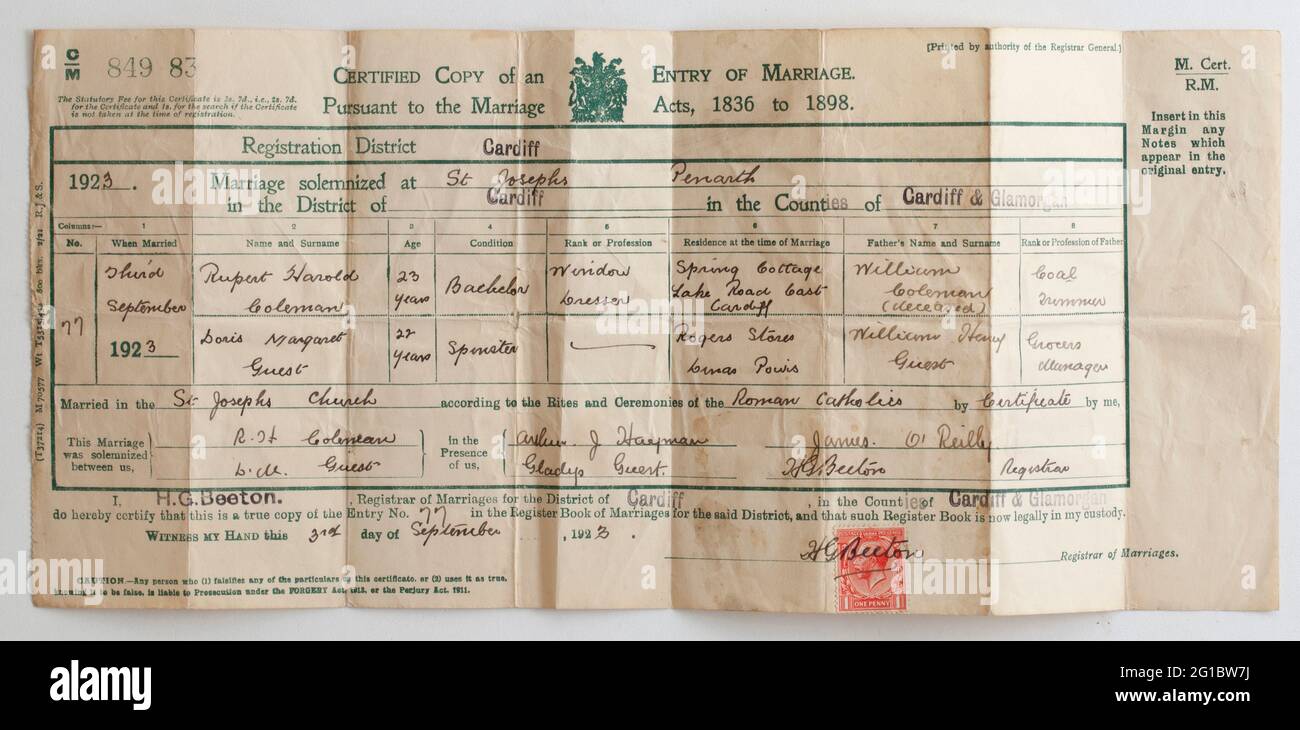 C/M 849 83
[Printed by authority of the Registrar General.]
M. Cert.
R.M.
CERTIFIED COPY OF AN ENTRY OF MARRIAGE.
PURSUANT TO THE MARRIAGE ACTS, 1836 TO 1898.
The Statutory Fee for this Certificate is 2s. 7d., i.e., 2s. 7d.
for the Certificate and 1s. for the search if the Certificate
is not taken at the time of registration.
Insert in this
Margin any
Notes which
appear in the
original entry.
Registration District Cardiff
1923. Marriage solemnized at St Josephs Penarth
in the District of Cardiff in the Counties of Cardiff & Glamorgan
Columns:— 1 2 3 4 5 6 7 8
No. When Married Name and Surname Age Condition Rank or Profession Residence at the time of Marriage Father's Name and Surname Rank or Profession of Father
77
Third
September
1923
Rupert Harold
Coleman
23
years
Bachelor
Window
Dresser
Spring Cottage
Lake Road East
Cardiff
William
Coleman
(deceased)
Coal
Trimmer
Doris Margaret
Guest
22
years
Spinster
Rogers Stores
Dinas Powis
William Henry
Guest
Grocers
Manager
Married in the St Josephs Church according to the Rites and Ceremonies of the Roman Catholics by Certificate by me,
This Marriage
was solemnized
between us,
R. H Coleman
D. M. Guest
In the
Presence
of us,
Arthur. J Hayman
Gladys Guest.
James. O'Reilly
H G Beeton Registrar
I, H.G.Beeton. , Registrar of Marriages for the District of Cardiff , in the Counties of Cardiff & Glamorgan
do hereby certify that this is a true copy of the Entry No. 77 in the Register Book of Marriages for the said District, and that such Register Book is now legally in my custody.
WITNESS MY HAND this 3rd day of September , 1923.
H G Beeton Registrar of Marriages.
ONE PENNY
CAUTION.—Any person who (1) falsifies any of the particulars on this certificate, or (2) uses it as true,
knowing it to be false, is liable to Prosecution under the FORGERY Act, 1913, or the Perjury Act, 1911.
alamy
Image ID: 2G1BW7J
www.alamy.com